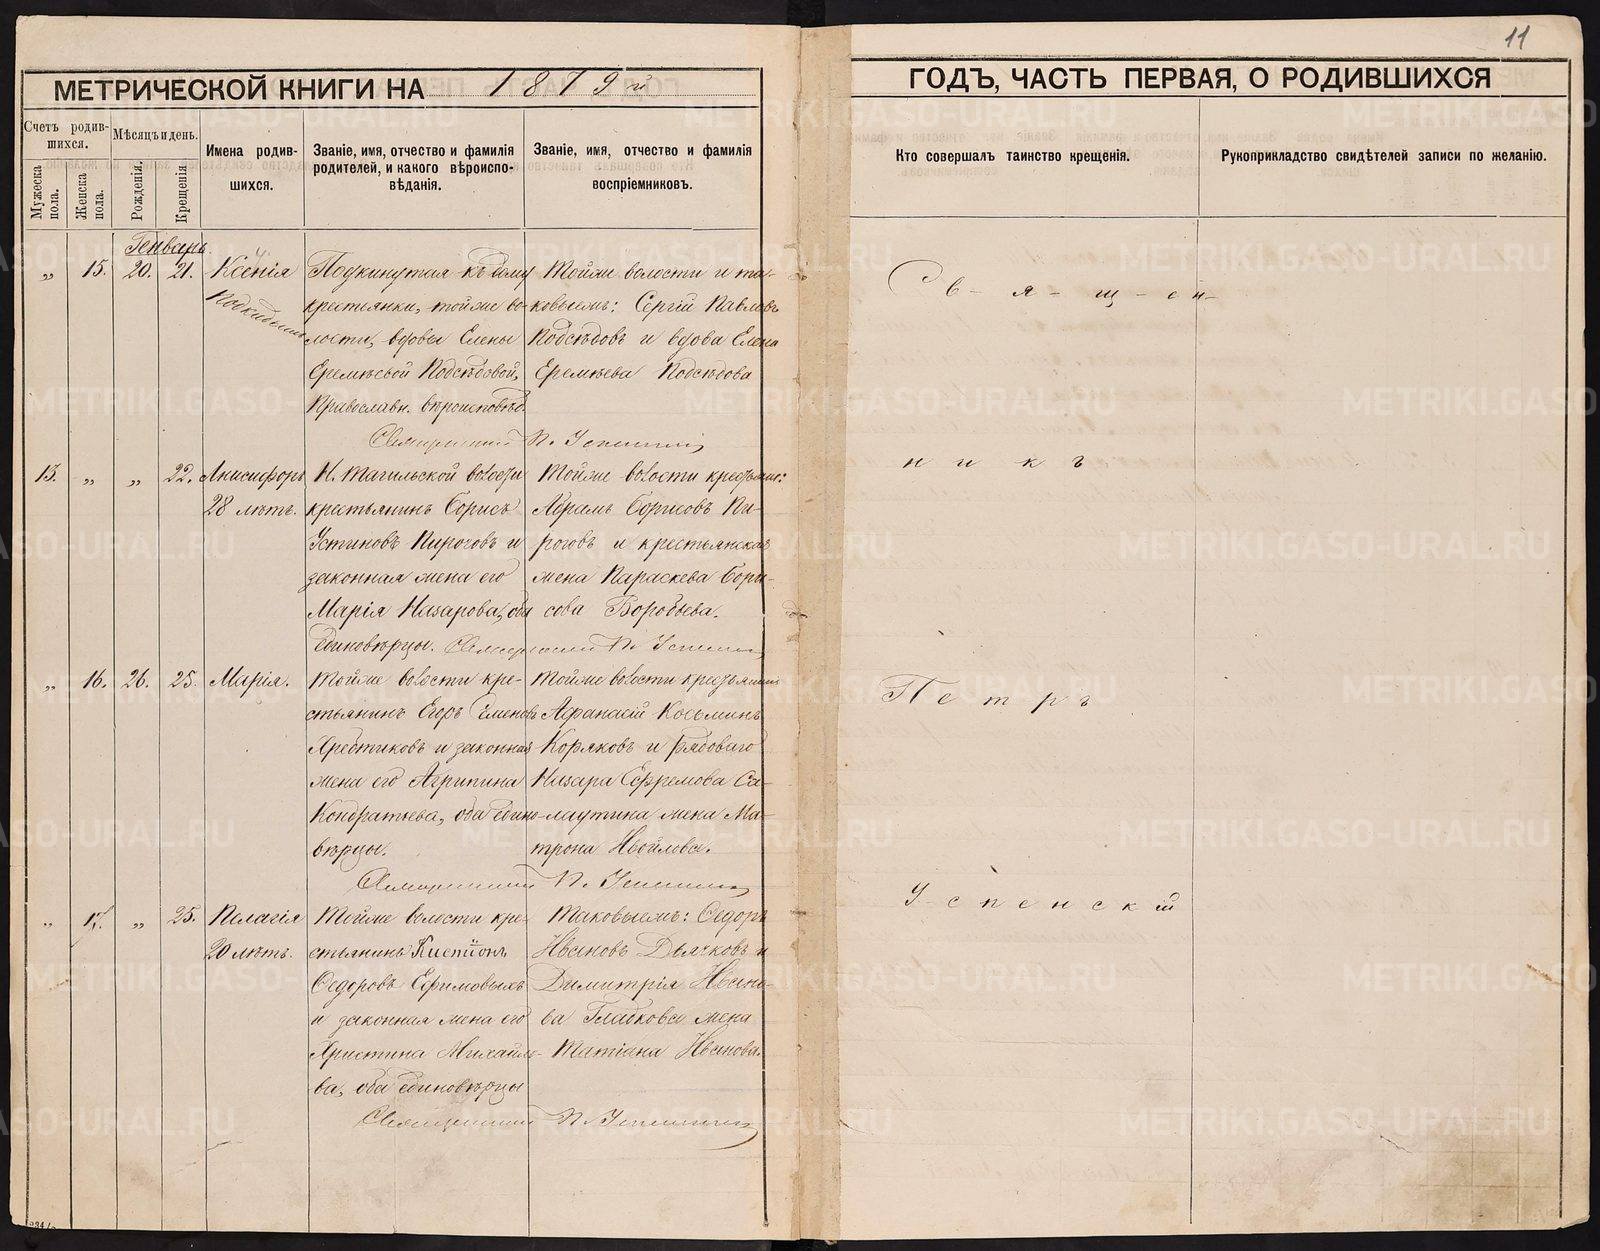 11
МЕТРИЧЕСКОЙ КНИГИ НА 1879 й
ГОДЪ, ЧАСТЬ ПЕРВАЯ, О РОДИВШИХСЯ
Счетъ родив-
шихся.
Мѣсяцъ и день.
Мужеска пола.
Женска пола.
Рожденія.
Крещенія
Имена родив-
шихся.
Званіе, имя, отчество и фамилія
родителей, и какого вѣроиспо-
вѣданія.
Званіе, имя, отчество и фамилія
воспріемниковъ.
Кто совершалъ таинство крещенія.
Рукоприкладство свидѣтелей записи по желанію.
Генварь
„ 15. 20. 21. Ксенія
Подкидыш
Подкинутая къ дому
крестьянки, тойже во-
лости, вдовы Елены
Еремѣевой Подсѣдовой,
Православн. вѣроисповѣд.
Тойже волости и та-
ковыемъ: Сергій Павловъ
Подсѣдовъ и вдова Елена
Еремѣева Подсѣдова
Священникъ П. Успенскій
13. „ „ 22. Анисифоръ
28 лѣтъ.
Н. Тагильской волости
крестьянинъ Борисъ
Устиновъ Пироговъ и
законная жена его
Марія Назарова, оба
единовѣрцы.
Тойже волости крестьянин:
Абрамъ Борисовъ Пи-
роговъ и крестьянская
жена Параскева Бори-
сова Воробьева.
Священникъ П. Успенскій
„ 16. 26. 25. Марія.
Тойже волости кре-
стьянинъ Егоръ Семеновъ
Хребтиковъ и законная
жена его Агрипина
Кондратьева, оба едино-
вѣрцы.
Тойже волости крестьянинъ
Афанасій Косьминъ
Коряковъ и рядоваго
Назара Ефремова Са-
лаутина жена Ма-
трона Ивойлова.
Священникъ П. Успенскій
„ 17. „ 25. Пелагія
20 лѣтъ.
Тойже волости кре-
стьянинъ
Ѳедоровъ Ефимовыхъ
и законная жена его
Христина Михайло-
ва, оба единовѣрцы
Таковыемъ: Ѳедоръ
Ивановъ Дьячковъ и
Димитрія Ивано-
ва Гладкова жена
Татіана Иванова.
Священникъ П. Успенскій
Священ-
никъ
Петръ
Успенскій
METRIKI.GASO-URAL.RU